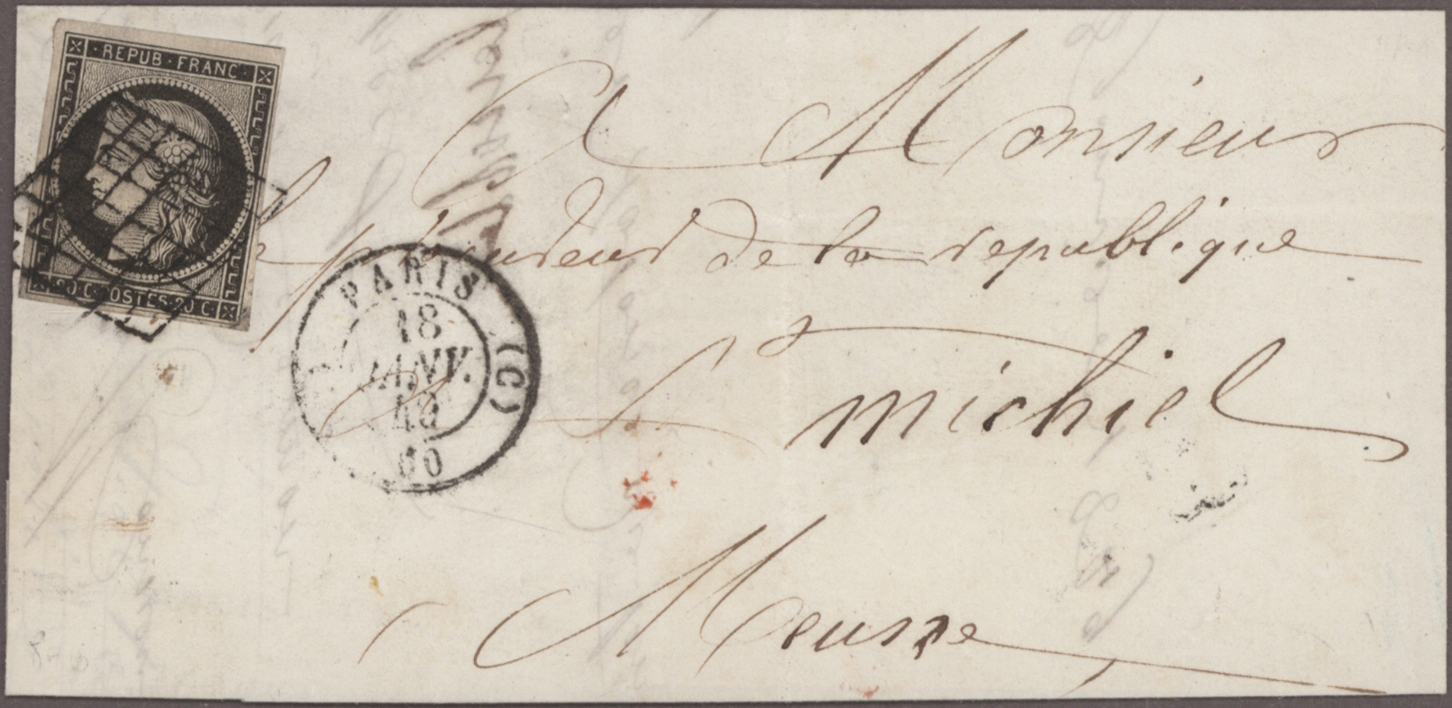 REPUB·FRANC·
20·C·POSTES·20·C·
PARIS (C)
18
JANV.
60
A Monsieur
le procureur de la republique
a St michiel
Meuse